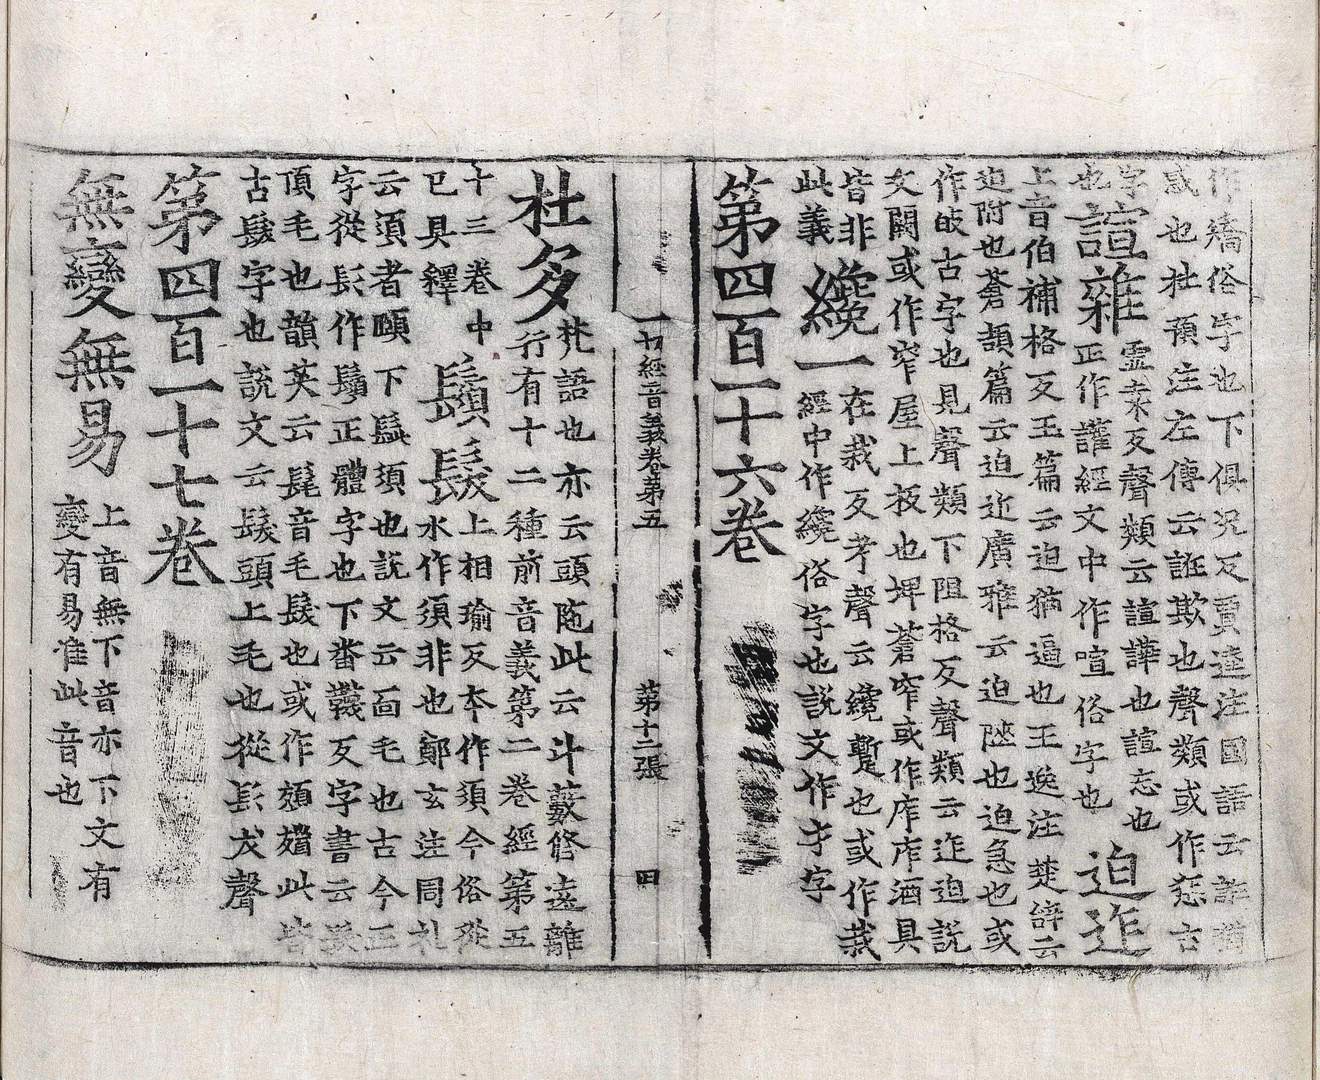 作矯俗字也下俱況反賈逵注國語云詐猶
惑也杜預注左傳云誑欺也聲類或作惩古
字 諠雜 正作讙經文中作喧俗字也
霊来反聲類云諠譁也諠忘也
迫迮
上音伯補格反玉篇云迫猶逼也王逸注楚辞云
迫附也蒼頡篇云迫近廣雅云迫陿也迫急也或
作㱟古字也見聲類下阻格反聲類云迮迫説
文闕或作窄屋上板也埤蒼窄或作厏厏酒具
皆非
此義 纔一 在裁反考聲云纔暫也或作裁
經中作纔俗字也説文作才字
第四百一十六卷
一切經音義卷第五 第十二張 田
杜多 梵語也亦云頭陁此云斗藪修遠離
行有十二種前音義第二卷經第五
十三卷中
已具釋 鬚髮 上相瑜反本作須今俗從
水作須非也鄭玄注周礼
云須者頤下鬚須也説文云面毛也古今正
字從髟作鬚正體字也下畨韈反字書云髮
頂毛也韻英云髦音毛髮也或作䫙㛹此皆
古髮字也説文云髮頭上毛也從髟犮聲
第四百一十七卷
無變無易 上音無下音亦下文有
變有易准此音也